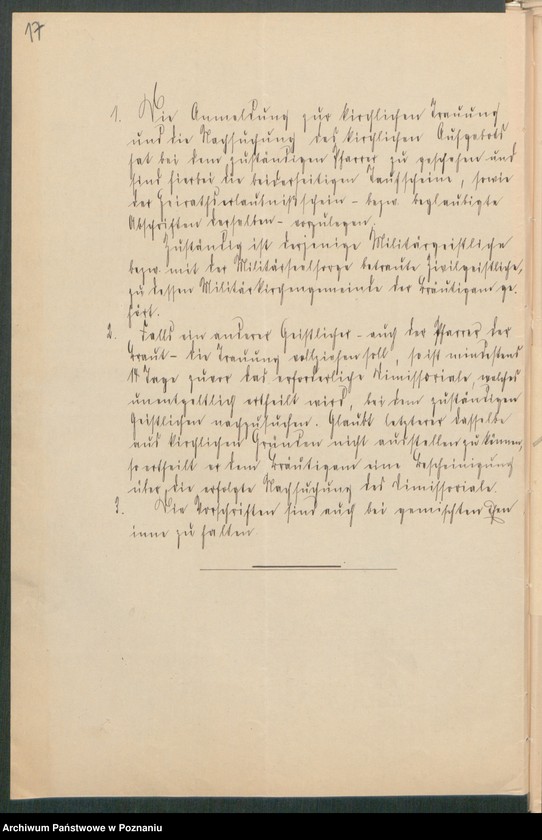 17
1. Die Anmeldung zur kirchlichen Trauung
und die Nachsuchung des kirchlichen Aufgebots
hat bei dem zuständigen Pfarrer zu geschehen und
sind hierbei die beiderseitigen Taufscheine, sowie
der Heirathserlaubnißschein - bezw. beglaubigte
Abschriften derselben - vorzulegen.
Zuständig ist derjenige Militärgeistliche
bezw. mit der Militärseelsorge betraute Zivilgeistliche,
zu dessen Militärkirchengemeinde der Bräutigam ge-
hört.
2. Falls ein anderer Geistlicher - auch der Pfarrer der
Braut - die Trauung vollziehen soll, so ist mindestens
14 Tage zuvor das erforderliche Dimissoriale, welches
unentgeltlich ertheilt wird, bei dem zuständigen
Geistlichen nachzusuchen. Glaubt letzterer dasselbe
aus kirchlichen Gründen nicht ausstellen zu können,
so ertheilt er dem Bräutigam eine Bescheinigung
über die erfolgte Nachsuchung des Dimissoriale.
3. Die Vorschriften sind auch bei gemischten Ehen
inne zu halten.
Archiwum Państwowe w Poznaniu